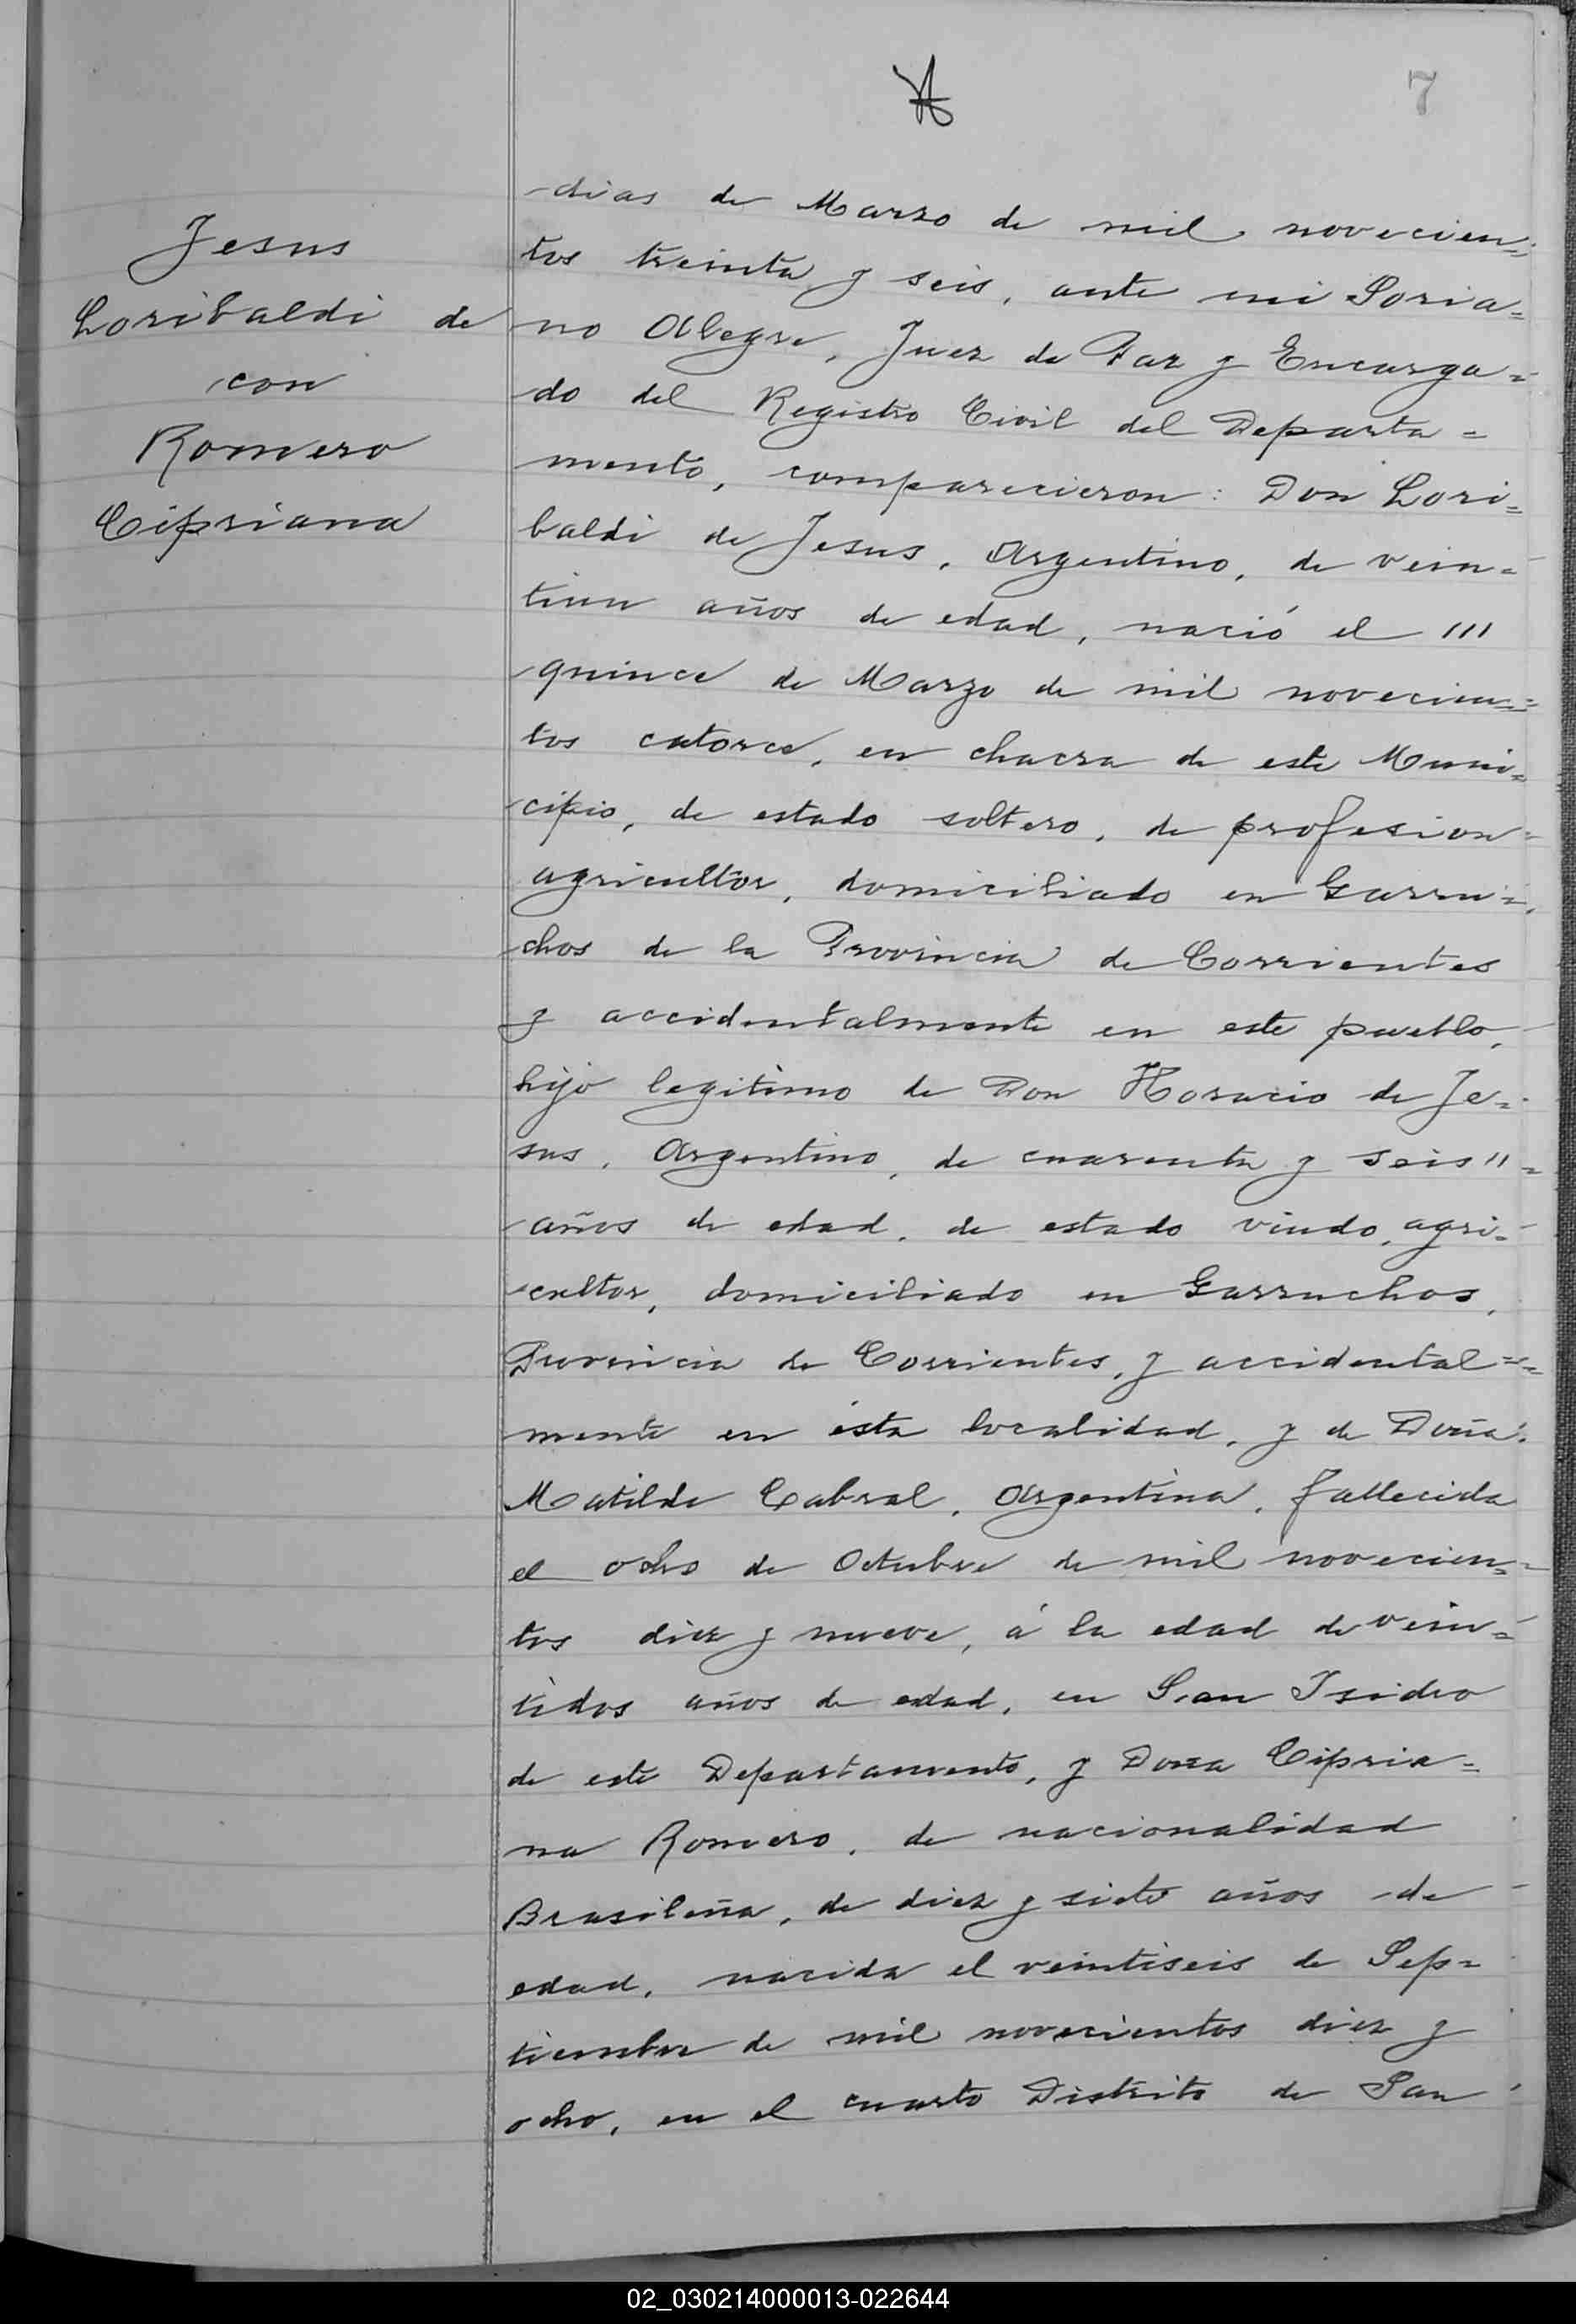 7
Jesus
Loribaldi de
con
Romero
Cipriana
dias de Marzo de mil novecien=
tos treinta y seis, ante mi Soria=
no Alegre, Juez de Paz y Encarga=
do del Registro Civil del Departa=
mento, comparecieron: Don Lori=
baldi de Jesus, Argentino, de vein=
tiun años de edad, nació el ///
quince de Marzo de mil novecien=
tos catorce, en chacra de este Muni=
cipio, de estado soltero, de profesion
agricultor, domiciliado en Garru=
chos de la Provincia de Corrientes
y accidentalmente en este pueblo,
hijo legitimo de Don Horacio de Je=
sus, Argentino, de cuarenta y seis "
años de edad, de estado viudo, agri=
cultor, domiciliado en Garruchos,
Provincia de Corrientes, y accidental=
mente en ésta localidad, y de Doña
Matilde Cabral, Argentina, fallecida
el ocho de Octubre de mil novecien=
tos diez y nueve, á la edad de vein=
tidos años de edad, en San Isidro
de este Departamento, y Doña Cipria=
na Romero, de nacionalidad
Brasileña, de diez y siete años de
edad, nacida el veintiseis de Sep=
tiembre de mil novecientos diez y
ocho, en el cuarto Distrito de San
02_030214000013-022644